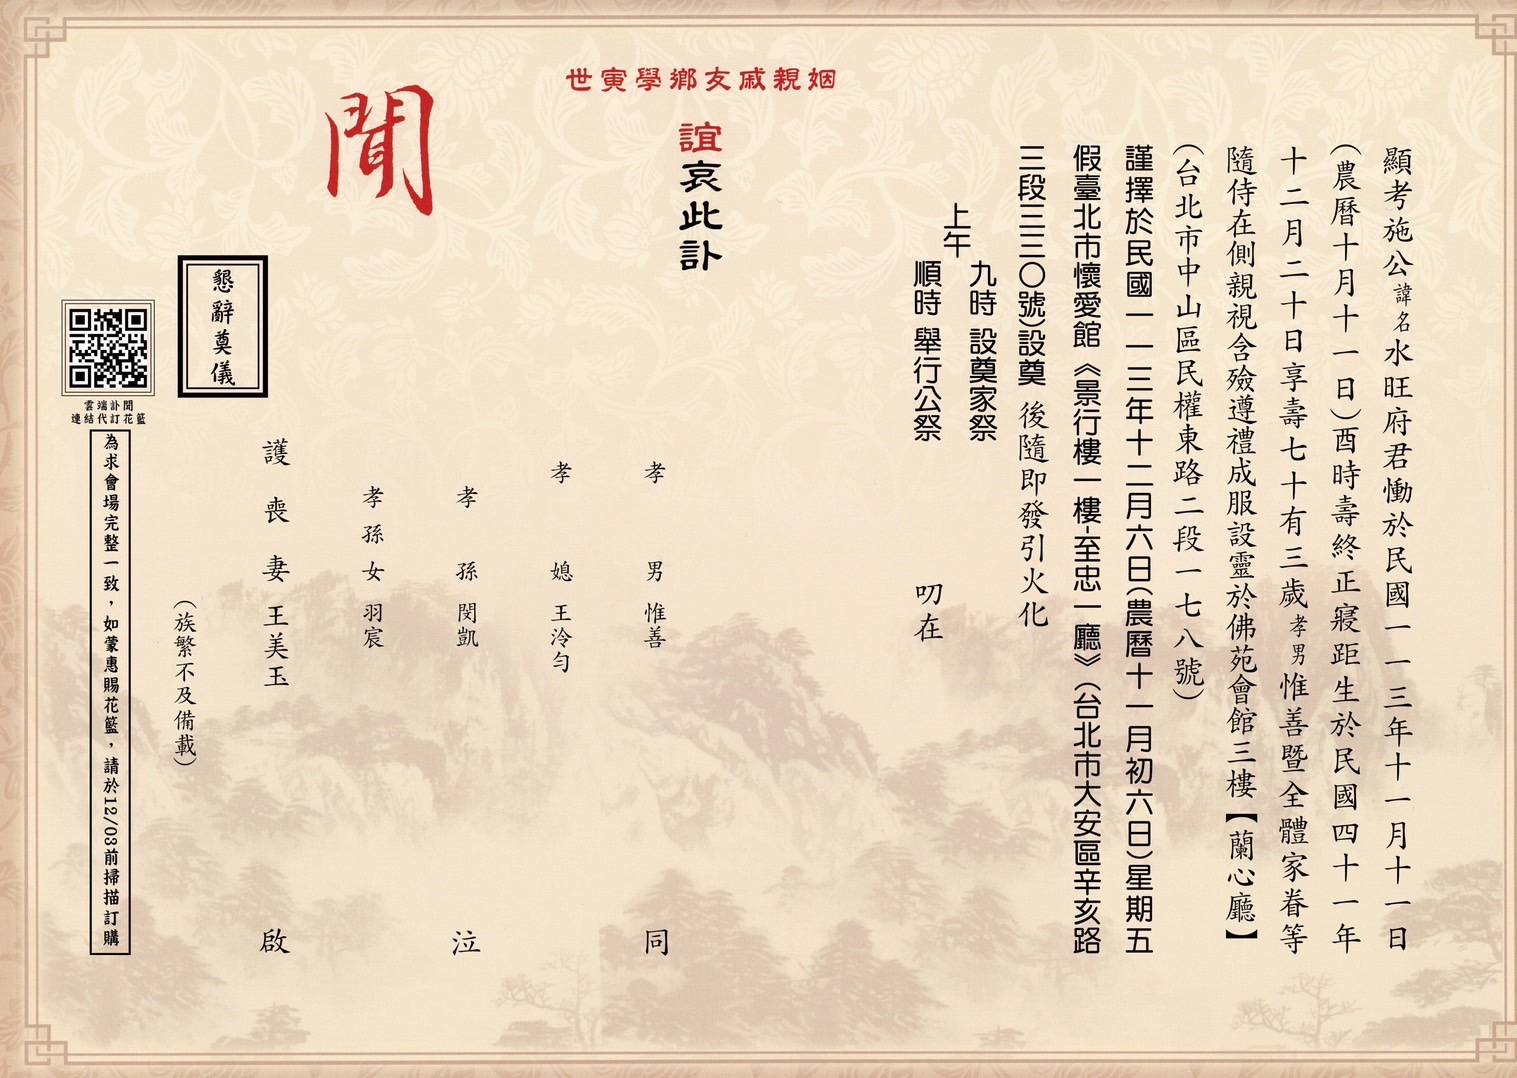 顯考施公諱名水旺府君慟於民國一一三年十一月十一日
(農曆十月十一日)酉時壽終正寢距生於民國四十一年
十二月二十日享壽七十有三歲孝男惟善暨全體家眷等
隨侍在側親視含殮遵禮成服設靈於佛苑會館三樓【蘭心廳】
(台北市中山區民權東路二段一七八號)
謹擇於民國一一三年十二月六日(農曆十一月初六日)星期五
假臺北市懷愛館《景行樓一樓-至忠一廳》(台北市大安區辛亥路
三段三三〇號)設奠 後隨即發引火化
上午
九時 設奠家祭
順時 舉行公祭
叨在
姻親戚友鄉學寅世
誼哀此訃
聞
孝男 惟善
孝媳 王泠勻
孝孫 閔凱
孝孫女 羽宸
護喪妻 王美玉
同
泣
啟
(族繁不及備載)
懇辭奠儀
雲端訃聞
連結代訂花籃
為求會場完整一致，如蒙惠賜花籃，請於12/03前掃描訂購